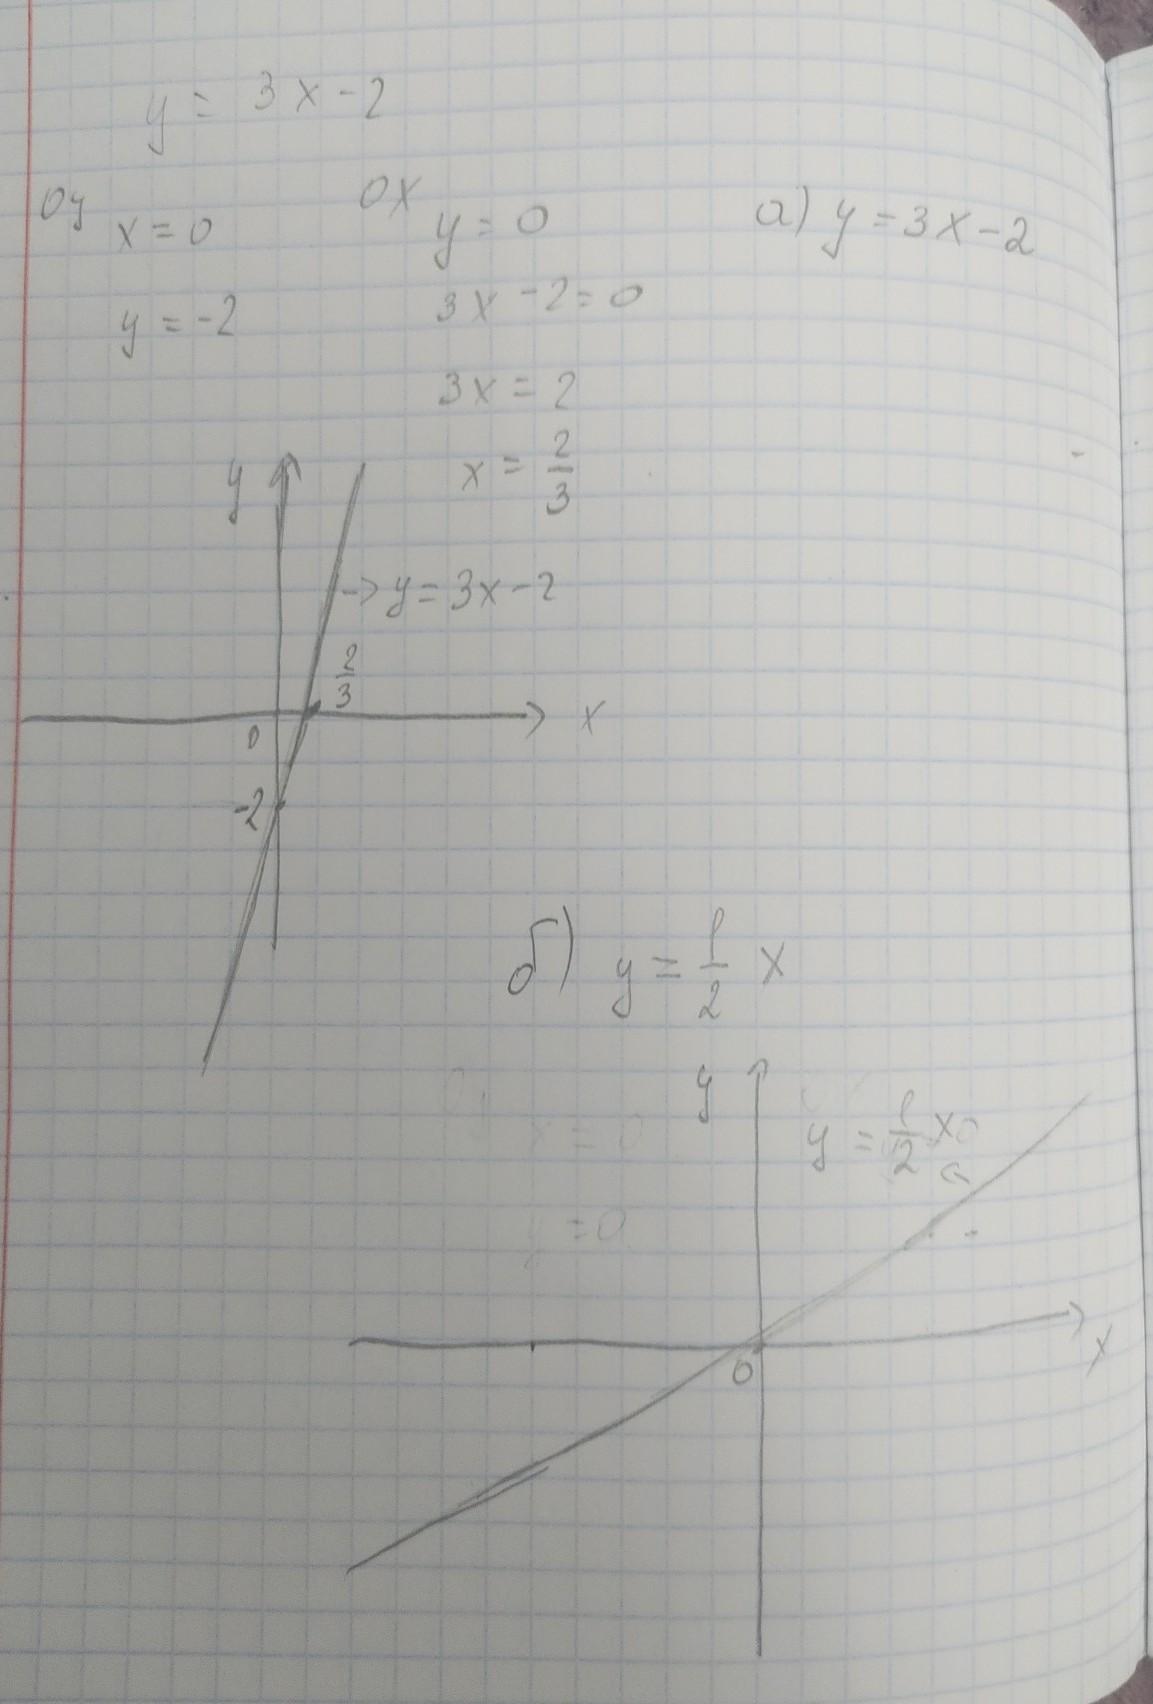 y = 3x - 2
Oy Ox
x = 0 y = 0 а) y = 3x - 2
y = -2 3x - 2 = 0
3x = 2
y x = 2/3
-> y = 3x - 2
2/3
0 x
-2
б) y = 1/2 x
y
x = 0 y = 1/2 x
y = 0
0 x